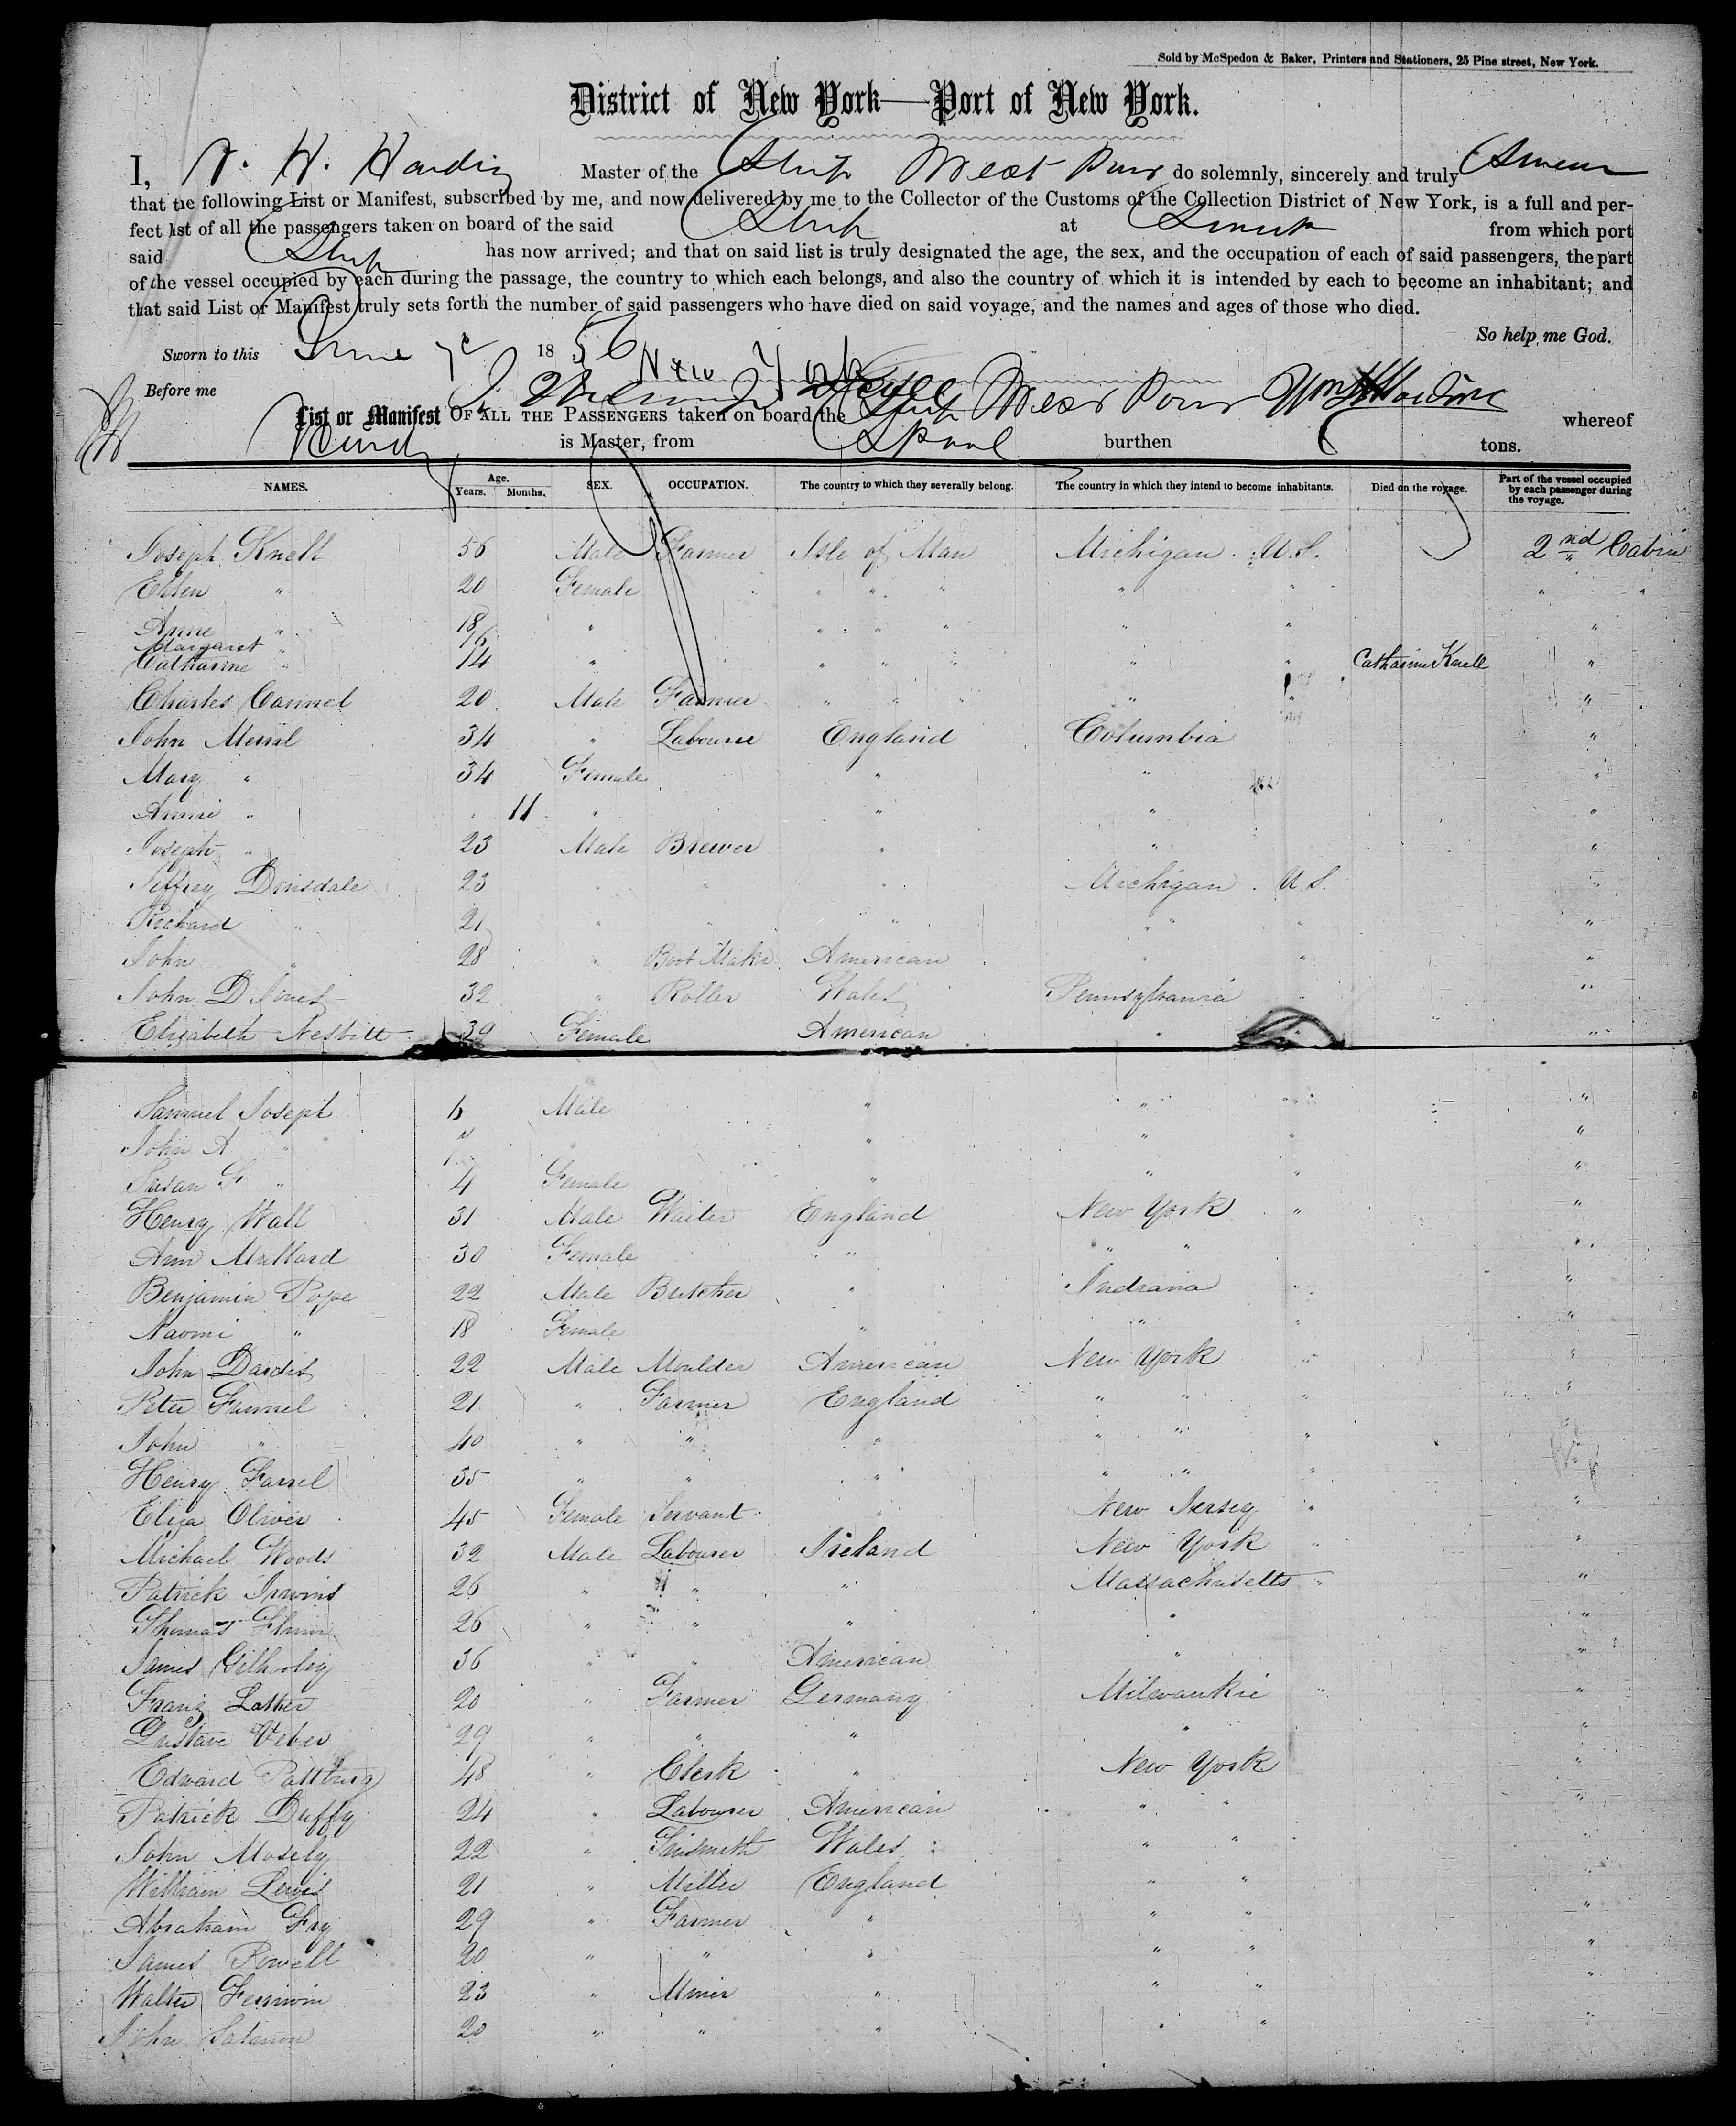 Sold by McSpedon & Baker, Printers and Stationers, 25 Pine street, New York.
District of New York—Port of New York.
I, W. H. Harding Master of the Ship West Point do solemnly, sincerely and truly Swear
that the following List or Manifest, subscribed by me, and now delivered by me to the Collector of the Customs of the Collection District of New York, is a full and per-
fect list of all the passengers taken on board of the said Ship at from which port
said Ship has now arrived; and that on said list is truly designated the age, the sex, and the occupation of each of said passengers, the part
of the vessel occupied by each during the passage, the country to which each belongs, and also the country of which it is intended by each to become an inhabitant; and
that said List or Manifest truly sets forth the number of said passengers who have died on said voyage, and the names and ages of those who died.
So help me God.
Sworn to this June 1856
Before me New York
List or Manifest OF ALL THE PASSENGERS taken on board the Ship West Point Wm H Harding whereof
is Master, from L'Pool burthen tons.
NAMES. Age. Years. Months. SEX. OCCUPATION. The country to which they severally belong. The country in which they intend to become inhabitants. Died on the voyage. Part of the vessel occupied by each passenger during the voyage.
Joseph Knell 56 Male Farmer Isle of Man Michigan U.S. 2nd Cabin
Ellen " 20 Female " " " " " " "
Anne " 18 " " " " " " "
Margaret " 16
Catharine " 14 " " " " " " Catharine Knell "
Charles Cannel 20 Male Farmer " " " " "
John Merril 34 " Labourer England Columbia "
Mary " 34 Female " " "
Annie " 11 " " " "
Joseph " 23 Male Brewer " " "
Jeffrey Dinsdale 23 " " " Michigan U.S. "
Richard " 21 " " " " " "
John " 28 " Boot Maker American " " "
John D Jones 32 " Roller Wales Pennsylvania " "
Elizabeth Nesbitt 39 Female American " " "
Samuel Joseph 6 Male " " " "
John A " " " " " "
Susan F " 4 Female " " " "
Henry Wall 31 Male Waiter England New York " "
Ann Mullard 30 Female " " " "
Benjamin Pope 22 Male Butcher " Indiana " "
Naomi " 18 Female " " " "
John Dardis 22 Male Moulder American New York " "
Peter Fannel 21 " Farmer England " " " "
John " 40 " " " " " "
Henry Farrel 35 " " " " " "
Eliza Oliver 45 Female Servant " New Jersey " "
Michael Woods 32 Male Labourer Ireland New York " "
Patrick Irwins 26 " " " Massachusetts " "
Thomas 26 " " " " "
James Gilhooley 36 " " American " "
Franz Lather 20 " Farmer Germany Milwaukie " "
Gustave Veber 29 " " " " "
Edward 48 " Clerk " New York "
Patrick Duffy 24 " Labourer American " " "
John Mosely 22 " Tinsmith Wales " " "
William Lewis 21 " Miller England " " "
Abraham Fry 29 " Farmer " " " "
James Powell 20 " " " " " "
Walter 23 " Miner " " " "
John 20 " " " " " "